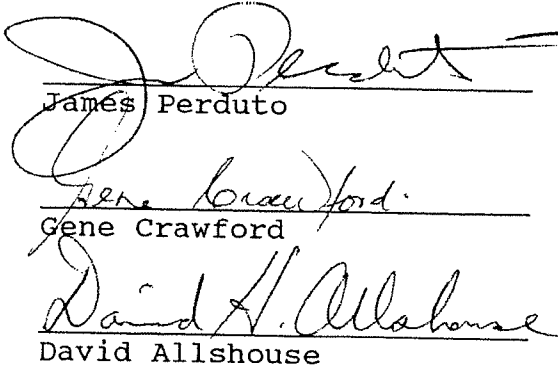 James Perduto
Gene Crawford.
Gene Crawford
David H. Allshouse
David Allshouse